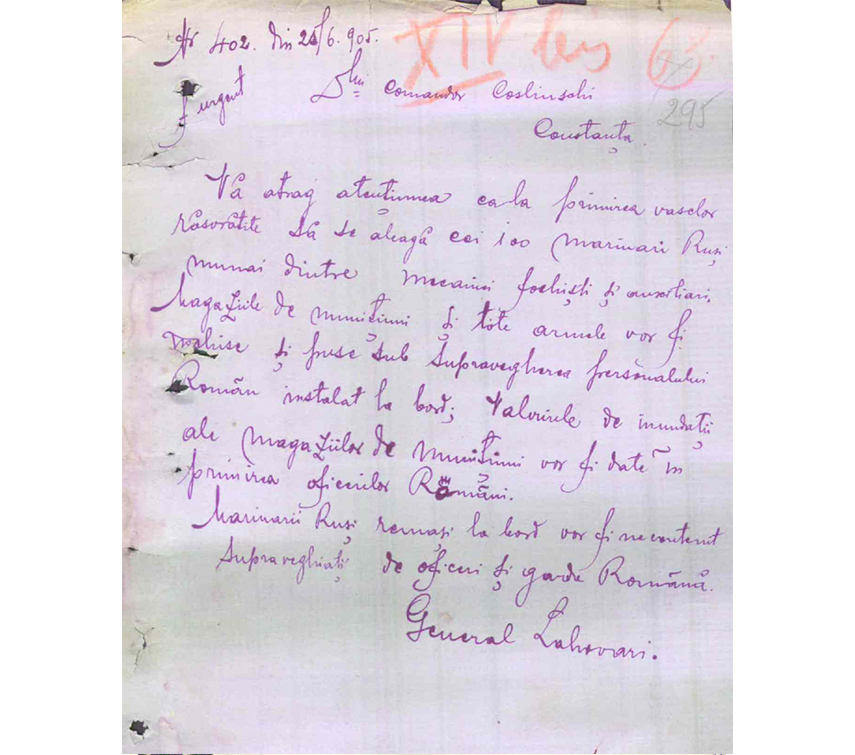 Nr 402. din 25/6. 905.
XIV bis
6
295
Urgent
Dlui Comandor Coslinschi
Constanța.
Vă atrag atențiunea ca la primirea vaselor
răsvrătite să se aleagă cei 100 marinari Ruși
numai dintre mecanici fochiști și auxiliari,
Magaziile de munițiuni și tóte armele vor fi
închise și puse sub supravegherea personalului
Român instalat la bord; Valvulele de inundații
ale magaziilor de munițiuni vor fi date în
primirea oficerilor Români.
Marinarii Ruși remași la bord vor fi necontenit
supraveghiați de oficeri și garde Română.
General Lahovari.